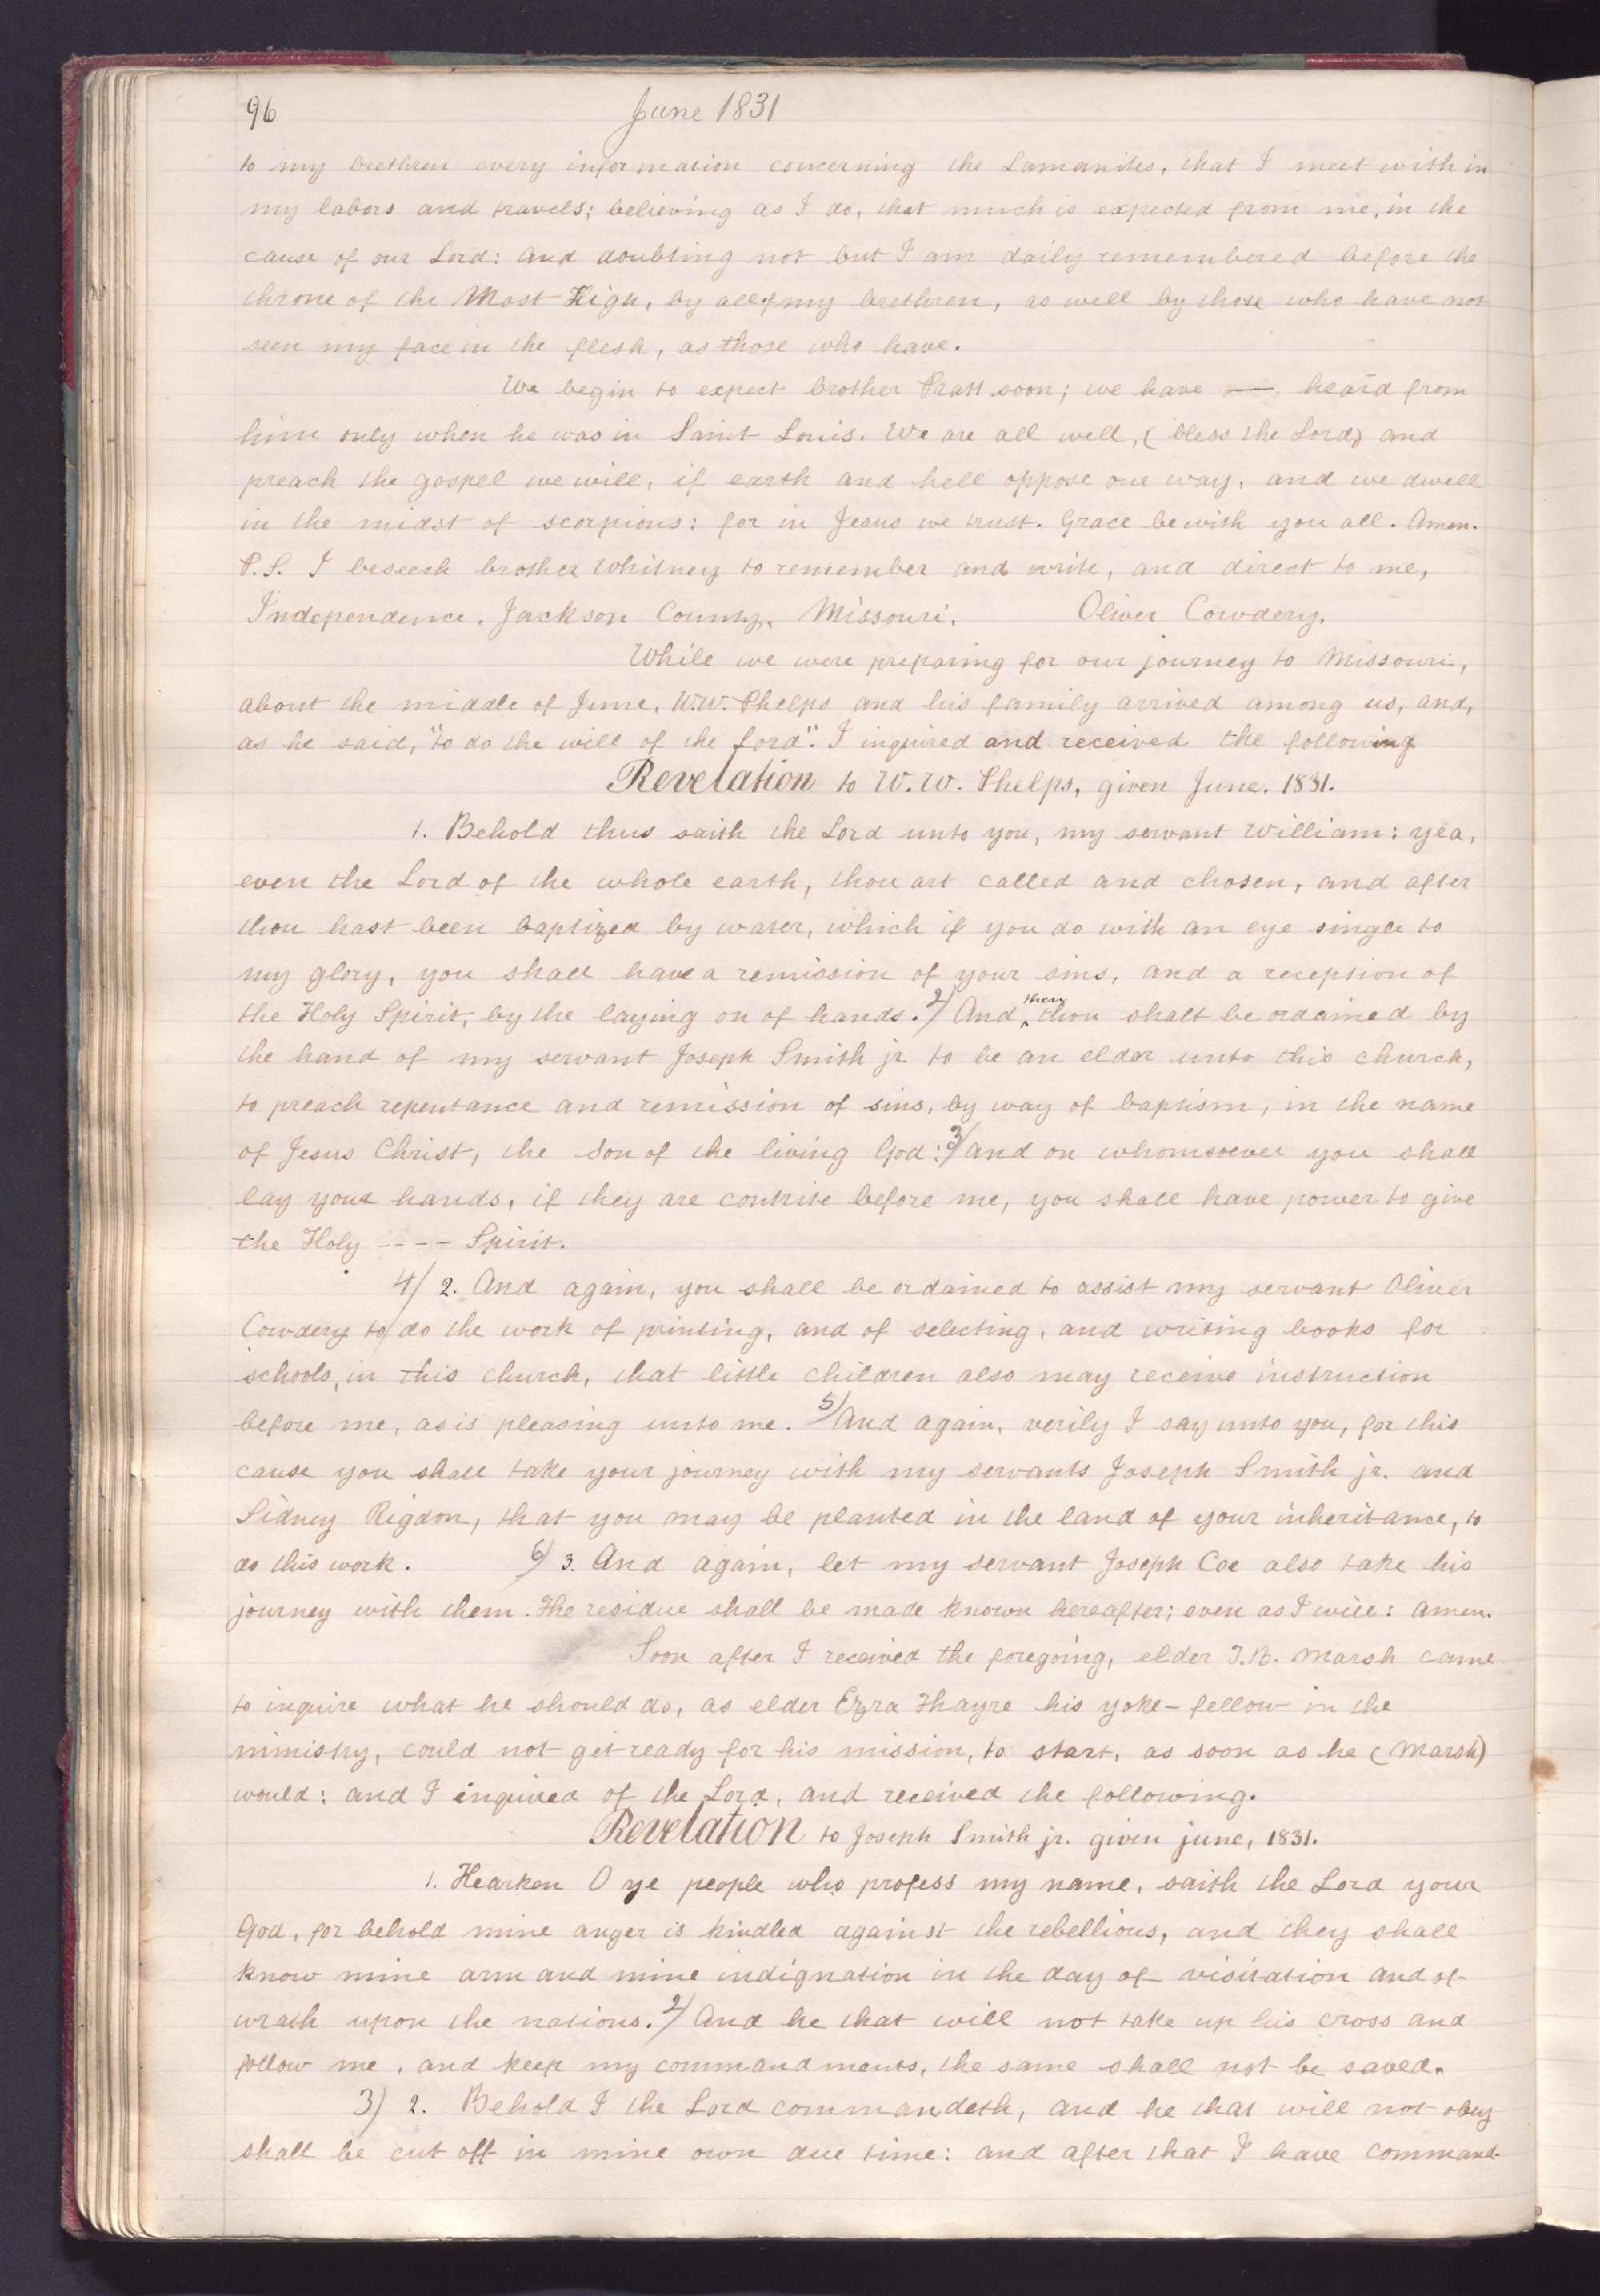 96 June 1831
to my brethren every information concerning the Lamanites, that I meet with in
my labors and travels; believing as I do, that much is expected from me, in the
cause of our Lord: and doubting not but I am daily remembered before the
throne of the Most High, by all of my brethren, as well by those who have not
seen my face in the flesh, as those who have.
We begin to expect brother Pratt soon; we have — heard from
him only when he was in Saint Louis. We are all well, (bless the Lord) and
preach the gospel we will, if earth and hell oppose our way, and we dwell
in the midst of scorpions: for in Jesus we trust. Grace be with you all. Amen.
P.S. I beseech brother Whitney to remember and write, and direct to me,
Independence, Jackson County, Missouri. Oliver Cowdery.
While we were preparing for our journey to Missouri,
about the middle of June, W.W. Phelps and his family arrived among us, and,
as he said, "to do the will of the Lord". I inquired and received the following
Revelation to W.W. Phelps, given June, 1831.
1. Behold thus saith the Lord unto you, my servant William: yea,
even the Lord of the whole earth, thou art called and chosen, and after
thou hast been baptized by water, which if you do with an eye single to
my glory, you shall have a remission of your sins, and a reception of
the Holy Spirit, by the laying on of hands. 2/ And ^then thou shalt be ordained by
the hand of my servant Joseph Smith jr. to be an elder unto this church,
to preach repentance and remission of sins, by way of baptism, in the name
of Jesus Christ, the Son of the living God: 3/ and on whomsoever you shall
lay your hands, if they are contrite before me, you shall have power to give
the Holy ---- Spirit.
4/ 2. And again, you shall be ordained to assist my servant Oliver
Cowdery to do the work of printing, and of selecting, and writing books for
schools, in this church, that little children also may receive instruction
before me, as is pleasing unto me. 5/ And again, verily I say unto you, for this
cause you shall take your journey with my servants Joseph Smith jr. and
Sidney Rigdon, that you may be planted in the land of your inheritance, to
do this work. 6/ 3. And again, let my servant Joseph Coe also take his
journey with them. The residue shall be made known hereafter; even as I will: amen.
Soon after I received the foregoing, elder T.B. Marsh came
to inquire what he should do, as elder Ezra Thayre his yoke-fellow in the
ministry, could not get ready for his mission, to start, as soon as he (Marsh)
would: and I enquired of the Lord, and received the following.
Revelation to Joseph Smith jr. given june, 1831.
1. Hearken O ye people who profess my name, saith the Lord your
God, for behold mine anger is kindled against the rebellious, and they shall
know mine arm and mine indignation in the day of visitation and of
wrath upon the nations. 2/ And he that will not take up his cross and
follow me, and keep my commandments, the same shall not be saved.
3) 2. Behold I the Lord commandeth, and he that will not obey
shall be cut off in mine own due time: and after that I have command-